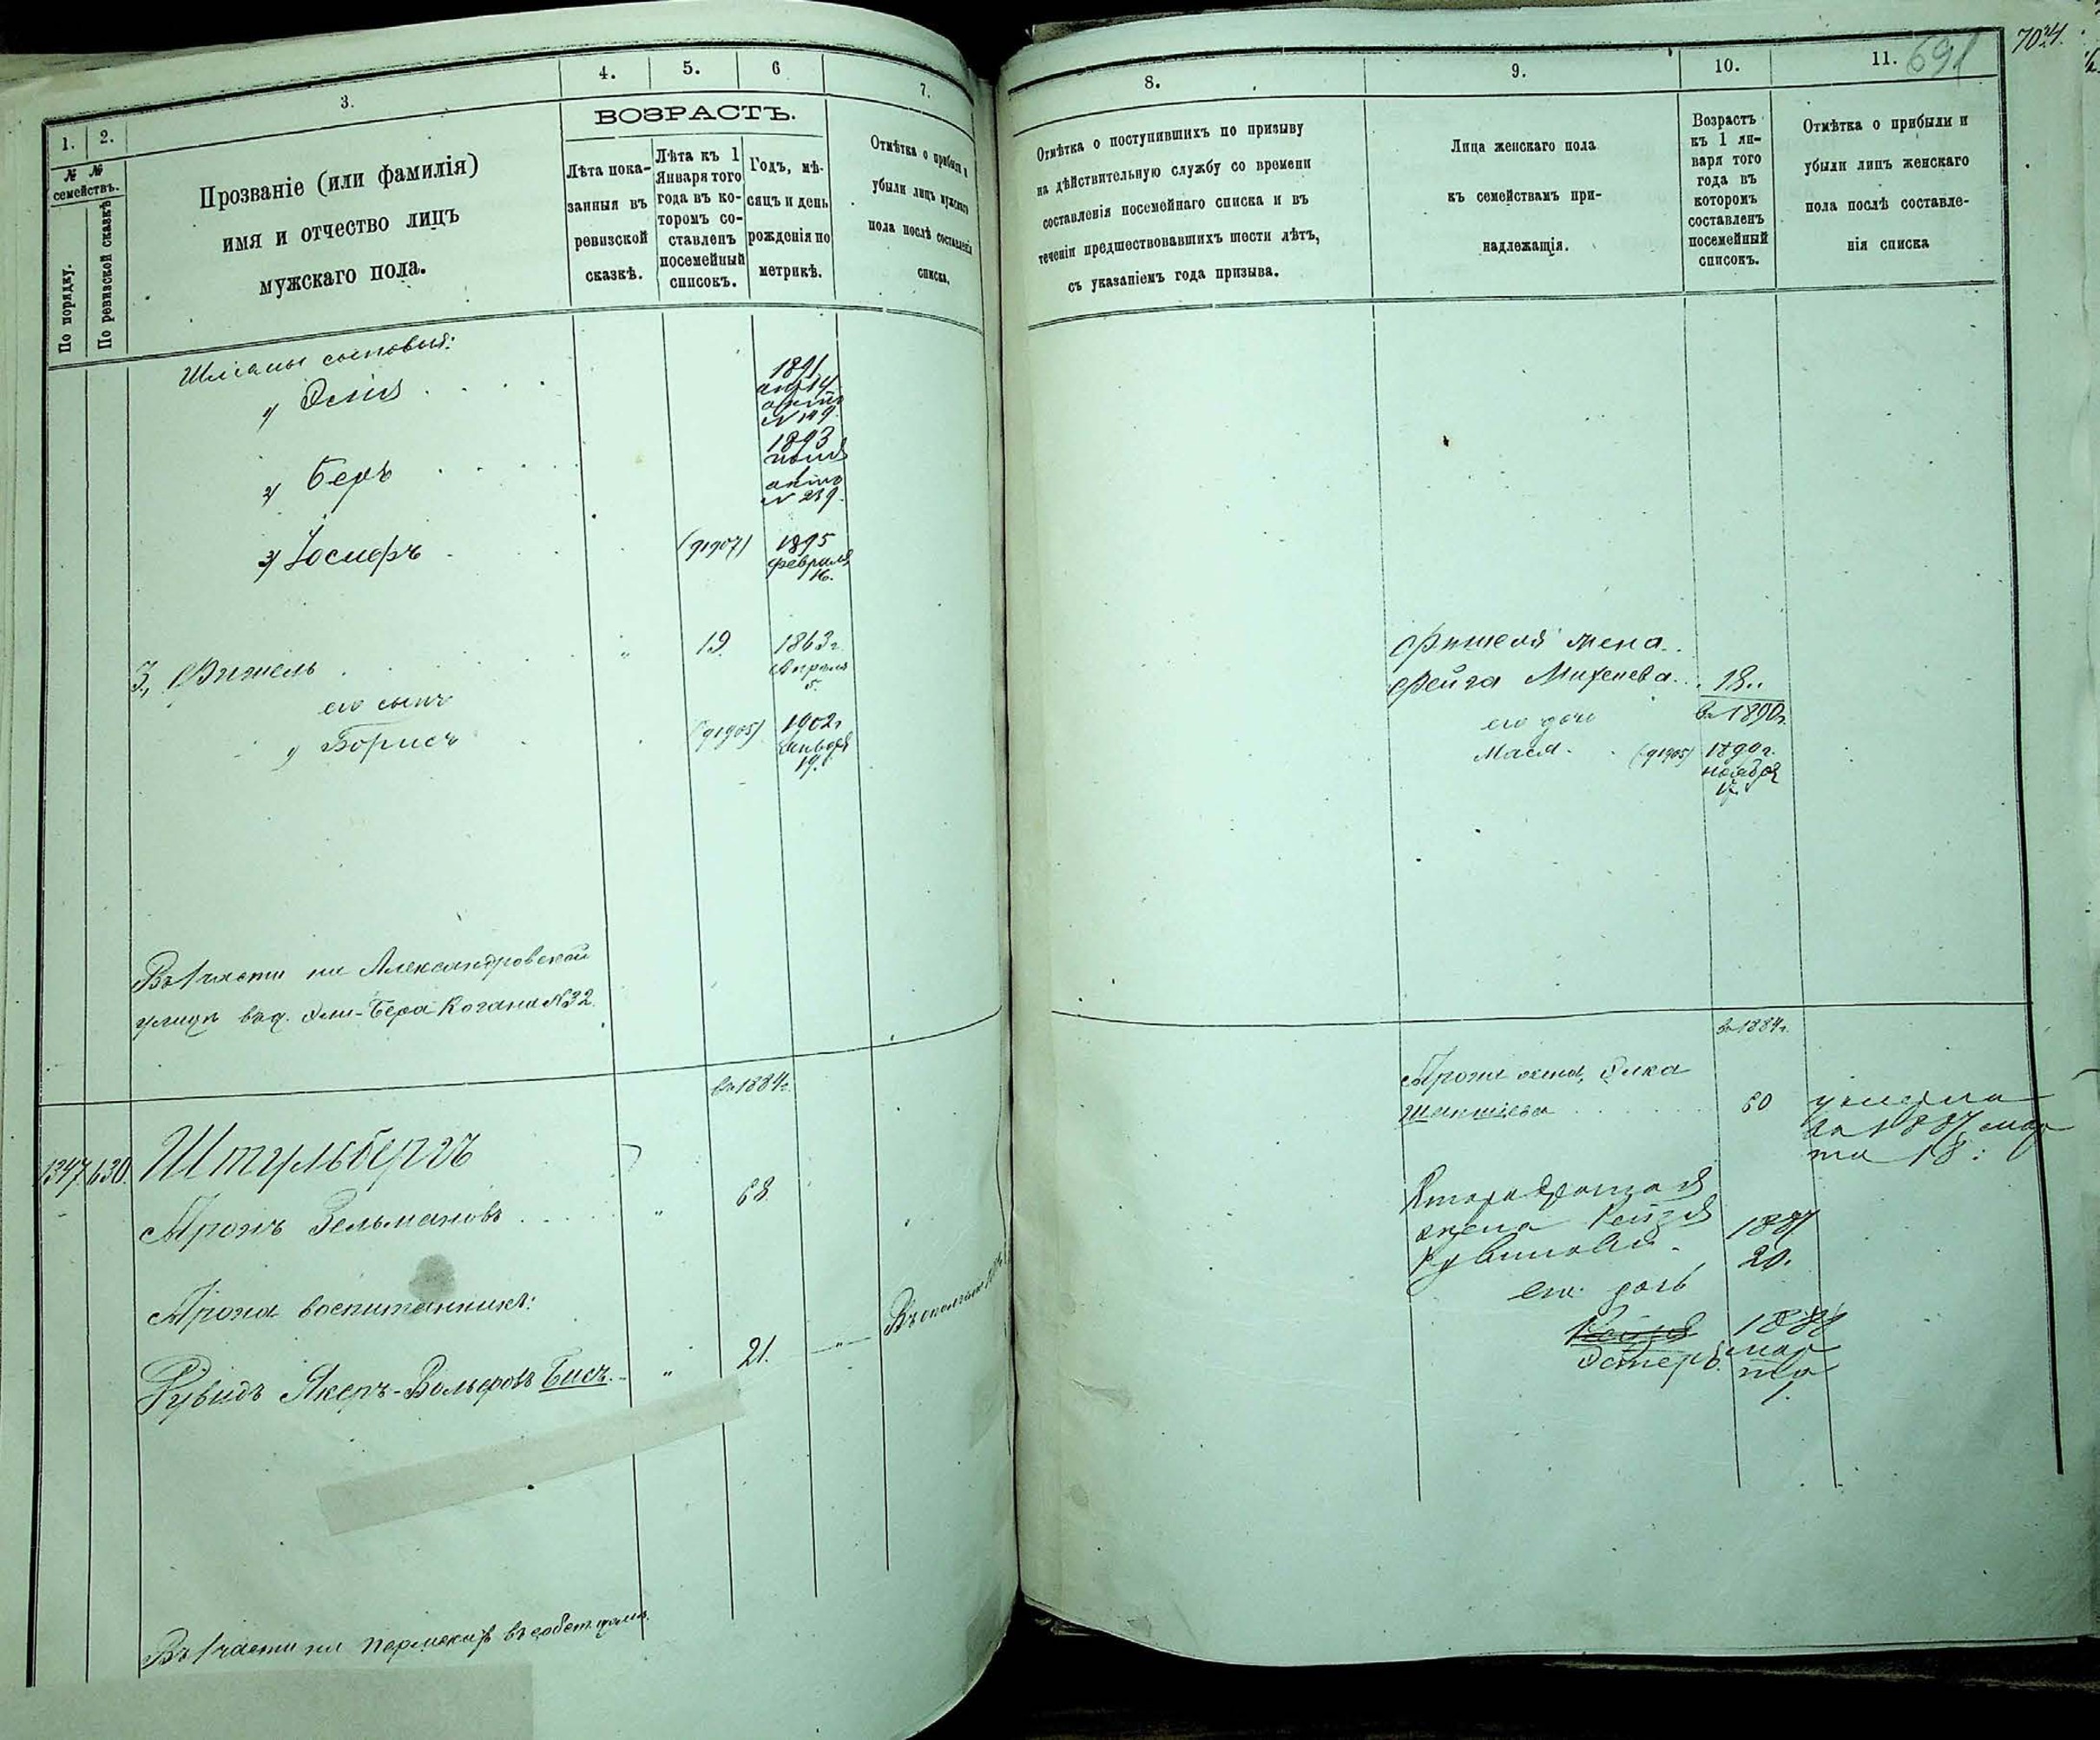 1.
2.
3.
4.
5.
6
7.
ВОЗРАСТЪ.
№ №
семействъ.
По порядку.
По ревизской сказкѣ
Прозваніе (или фамилія)
имя и отчество лицъ
мужскаго пола.
Лѣта пока-
занныя въ
ревизской
сказкѣ.
Лѣта къ 1
Января того
года въ ко-
торомъ со-
ставленъ
посемейный
списокъ.
Годъ, мѣ-
сяцъ и день
рожденія по
метрикѣ.
Отмѣтка о прибыли и
убыли лицъ мужскаго
пола послѣ составленія
списка.
сыновья:
1891
№ 149.
2) Беръ
1893
№ 239.
3) Іосифъ
1895
февраля
16.
3, Фишель
19.
1863 г.
Апрѣля
5.
его сынъ
1) Борисъ
1902 г.
января
19.
Въ 1 части на Александровской
улицѣ въ д. Эли-Бера Когана № 32.
въ 1884 г.
1347.
630.
Штульбергъ
Аронъ Зельмановъ
68.
Арона воспитанникъ:
Рувидъ Якеръ-Вольфовъ Бисъ.
21.
Въ 1 части на въ собст. домѣ.
8.
9.
10.
11.
691
7024.
Отмѣтка о поступившихъ по призыву
на дѣйствительную службу со времени
составленія посемейнаго списка и въ
теченіи предшествовавшихъ шести лѣтъ,
съ указаніемъ года призыва.
Лица женскаго пола
къ семействамъ при-
надлежащія.
Возрастъ
къ 1 ян-
варя того
года въ
которомъ
составленъ
посемейный
списокъ.
Отмѣтка о прибыли и
убыли лицъ женскаго
пола послѣ составле-
нія списка
Фишеля жена
Фейга
18.
въ 1890 г.
его дочь
Мася.
1899 г.
ноября
въ 1884 г.
Арона жена,
60
умерла
въ 1887 мар
та 18.
жена Рейзя
Рувинова
1887
20.
его дочь
Эстеръ.
1888
мар
та
1.